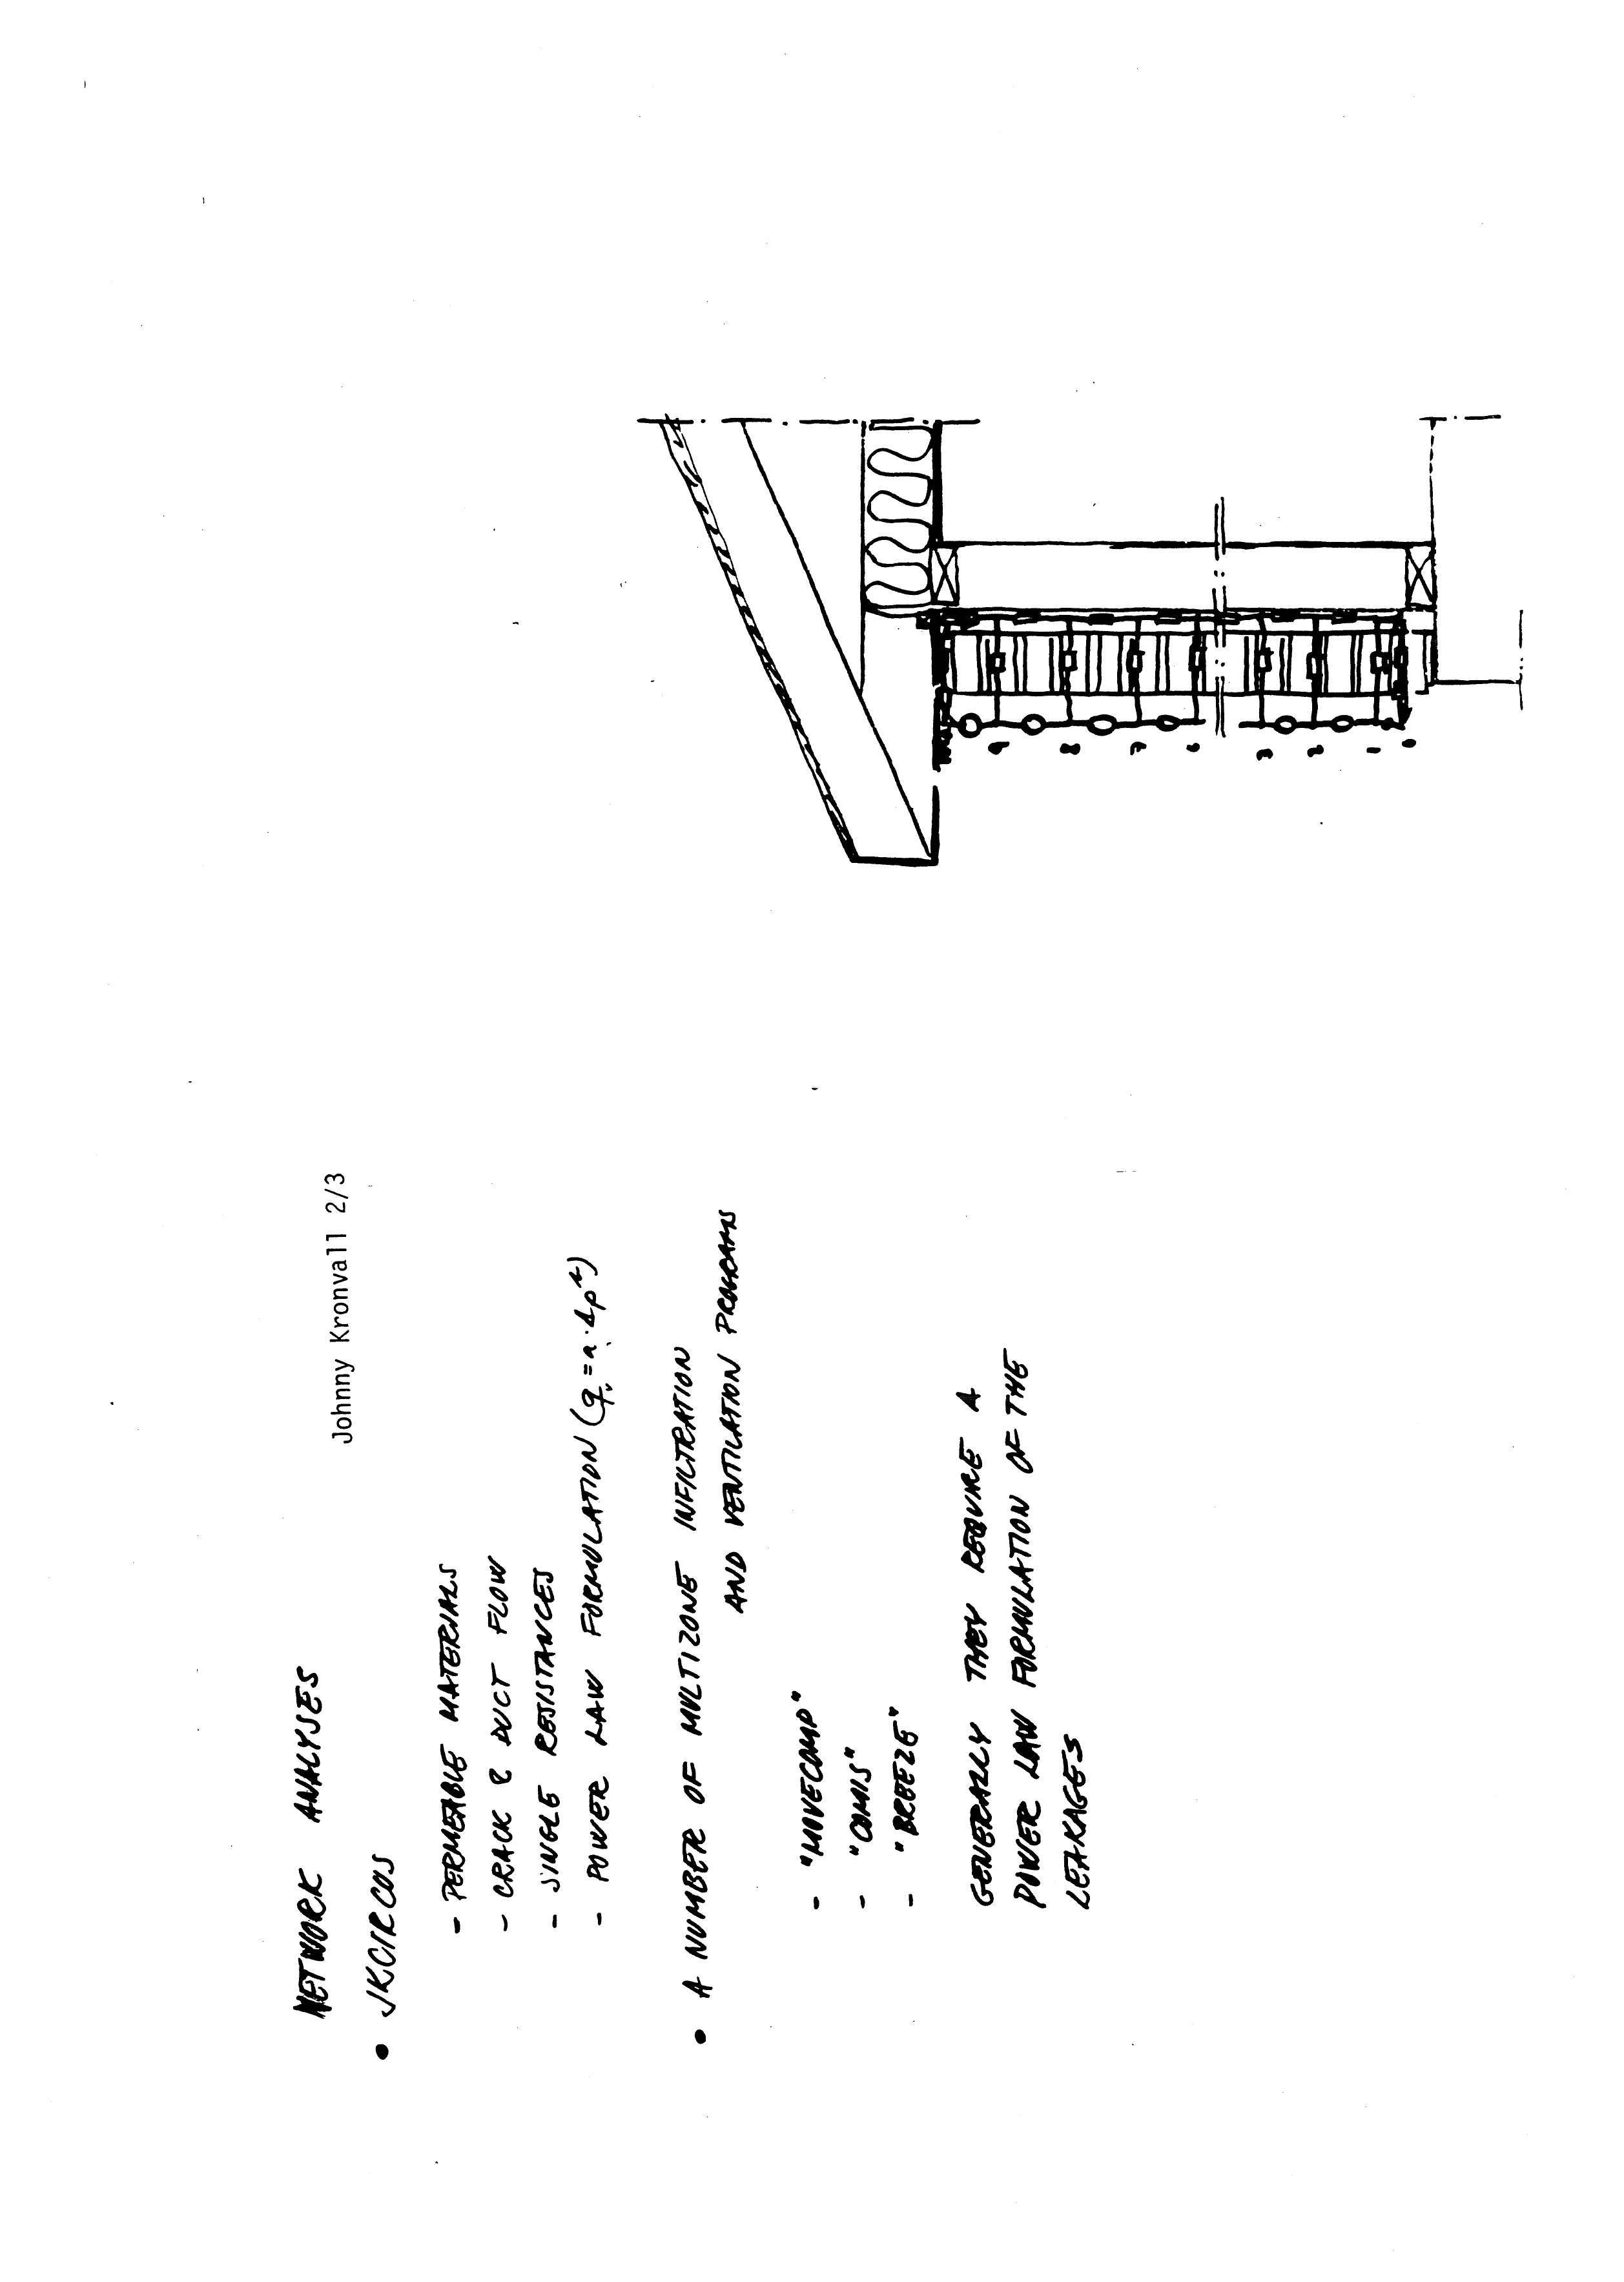 Johnny Kronvall 2/3
NETWORK ANALYSES
• JKCIRCOS
- PERMEABLE MATERIALS
- CRACK & DUCT FLOW
- SINGLE RESISTANCES
- POWER LAW FORMULATION (qᵥ = a · Δpⁿ)
• A NUMBER OF MULTIZONE INFILTRATION
AND VENTILATION PROGRAMS
- "MOVECOMP"
- "COMIS"
- "BREEZE"
GENERALLY THEY REQUIRE A
POWER LAW FORMULATION OF THE
LEAKAGES